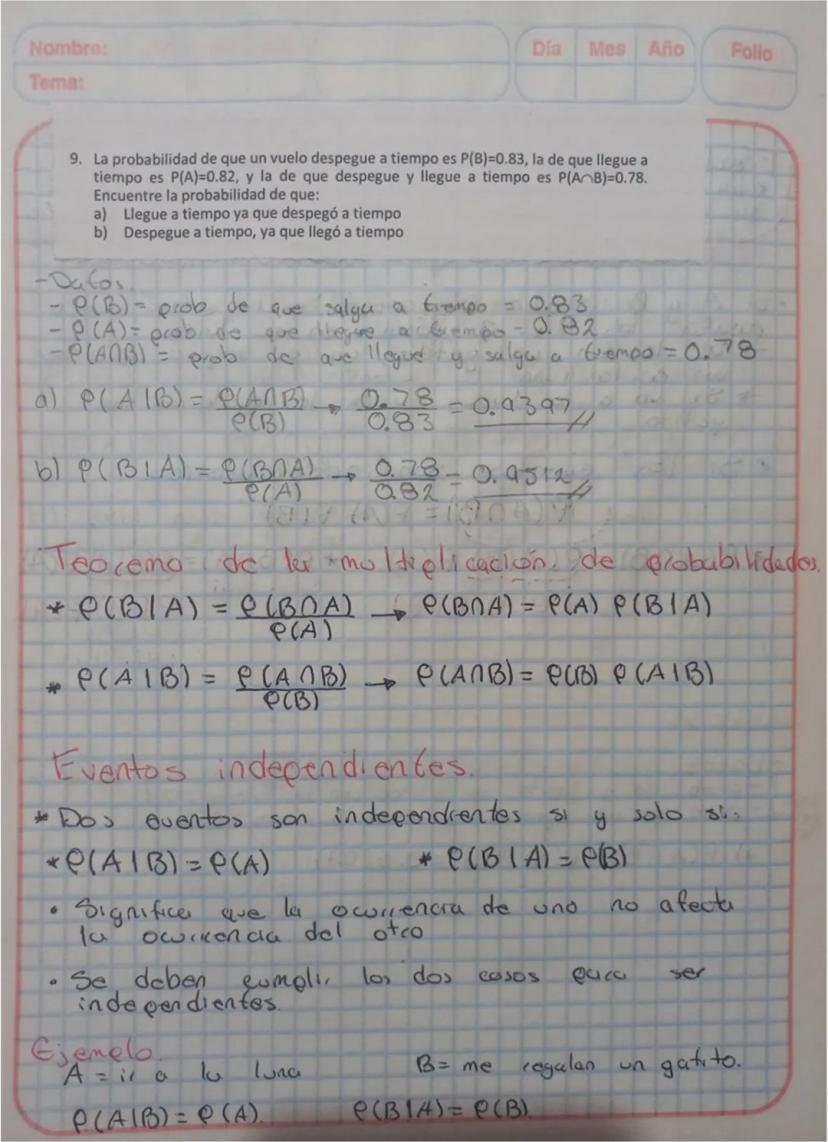 Nombre:
Día Mes Año
Folio
Tema:
9. La probabilidad de que un vuelo despegue a tiempo es P(B)=0.83, la de que llegue a
tiempo es P(A)=0.82, y la de que despegue y llegue a tiempo es P(A∩B)=0.78.
Encuentre la probabilidad de que:
a) Llegue a tiempo ya que despegó a tiempo
b) Despegue a tiempo, ya que llegó a tiempo
- Datos.
- P(B) = prob de que salga a tiempo = 0.83
- P(A) = prob de que llegue a tiempo = 0.82
- P(A∩B) = prob de que llegue y salga a tiempo = 0.78
a) P(A|B) = P(A∩B)/P(B) → 0.78/0.83 = 0.9397 //
b) P(B|A) = P(B∩A)/P(A) → 0.78/0.82 = 0.9512 //
Teorema de la multiplicación de probabilidades.
* P(B|A) = P(B∩A)/P(A) → P(B∩A) = P(A) P(B|A)
* P(A|B) = P(A∩B)/P(B) → P(A∩B) = P(B) P(A|B)
Eventos independientes.
* Dos eventos son independientes si y solo si.
* P(A|B) = P(A) * P(B|A) = P(B)
• Significa que la ocurrencia de uno no afecta
la ocurrencia del otro
• Se deben cumplir los dos casos para ser
independientes.
Ejemplo.
A = ir a la luna B = me regalan un gatito.
P(A|B) = P(A). P(B|A) = P(B)